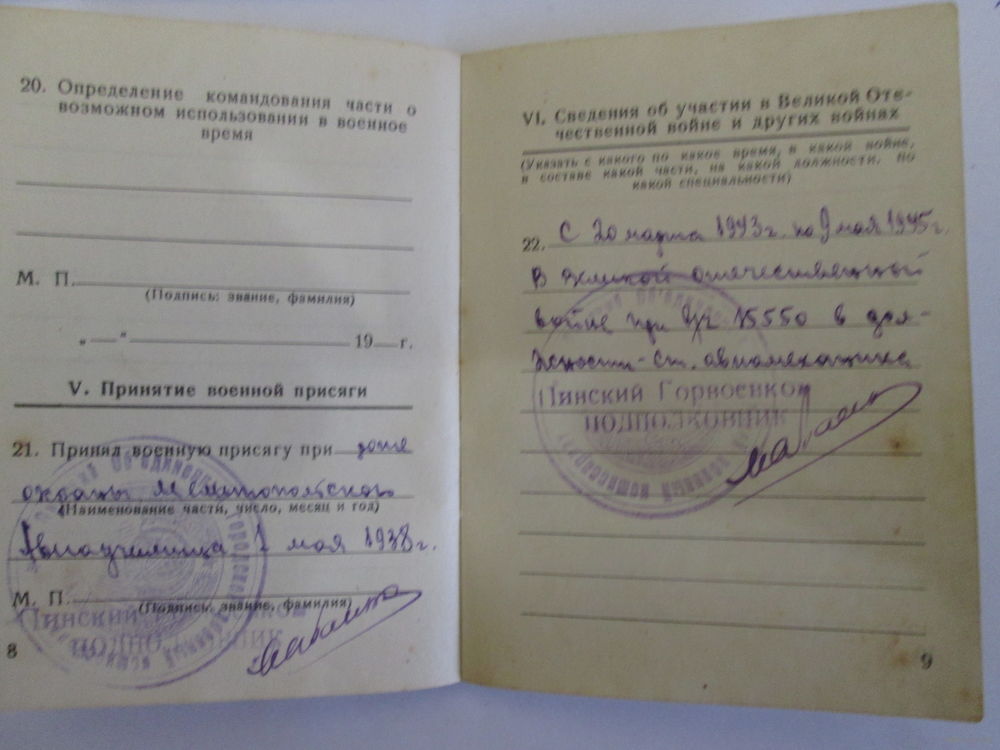 20. Определение командования части о
возможном использовании в военное
время
М. П.
(Подпись: звание, фамилия)
„ — “ 19 г.
V. Принятие военной присяги
21. Принял военную присягу при роте
охраны Мелитопольского
(Наименование части, число, месяц и год)
Авиаучилища 1 мая 1938 г.
М. П.
(Подпись: звание, фамилия)
Пинский
ПОДПОЛКОВНИК
8
VI. Сведения об участии в Великой Оте-
чественной войне и других войнах
(Указать с какого по какое время, в какой войне,
в составе какой части, на какой должности, по
какой специальности)
22. С 20 марта 1943 г. по 9 мая 1945 г.
В Великой отечественной
войне при в/ч 15550 в дол-
жности - ст. авиамеханика
Пинский Горвоенком
ПОДПОЛКОВНИК
9